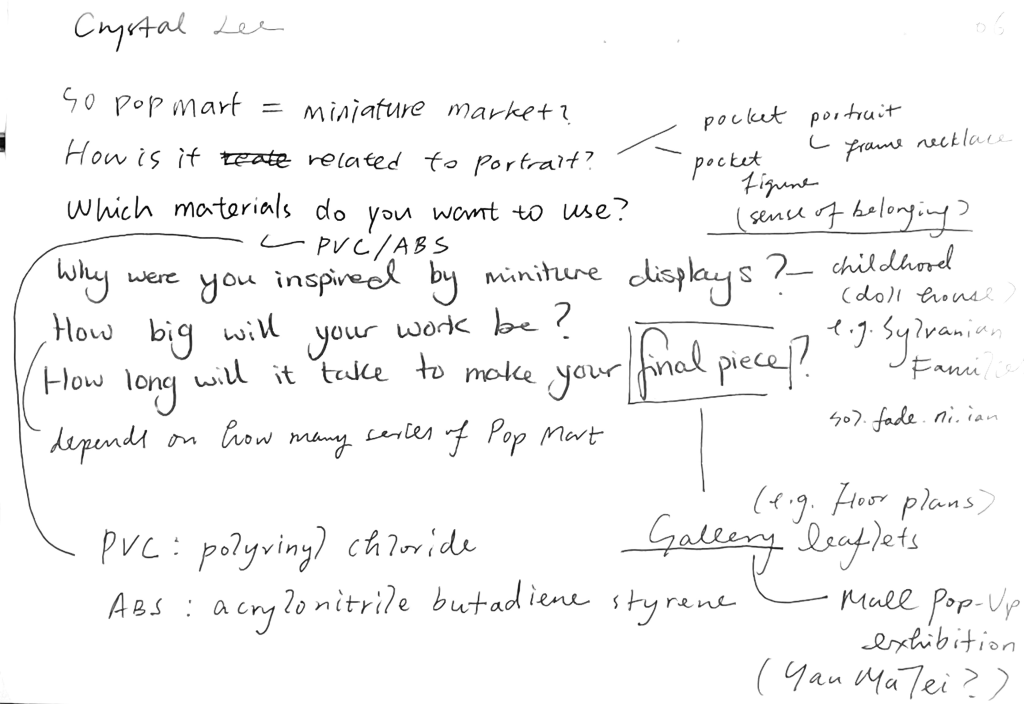 Crystal Lee
06
So pop mart = miniature market?
How is it related to portrait?
pocket portrait
frame necklace
pocket figure
(sense of belonging)
Which materials do you want to use?
PVC/ABS
Why were you inspired by miniture displays?
childhood
(doll house)
e.g. Sylvanian
Families
How big will your work be?
How long will it take to make your final piece?
50%. fade
depends on how many series of Pop Mart
(e.g. Floor plans)
Gallery leaflets
PVC: polyvinyl chloride
ABS: acrylonitrile butadiene styrene
Mall Pop-Up
exhibition
(Yau Ma Tei?)